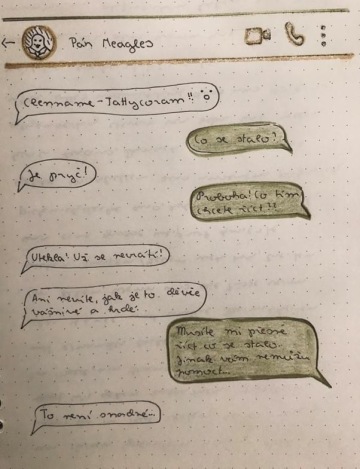 Pan Meagles
Clenname - Tattycoram!!
Co se stalo?
Je pryč!
Proboha! Co tím
chcete říct??
Utekla! Už se nevrátí!
Ani nevíte, jak je to děvče
vášnivé a hrdé.
Musíte mi přesně
říct co se stalo.
Jinak vám nemůžu
pomoct...
To není snadné...